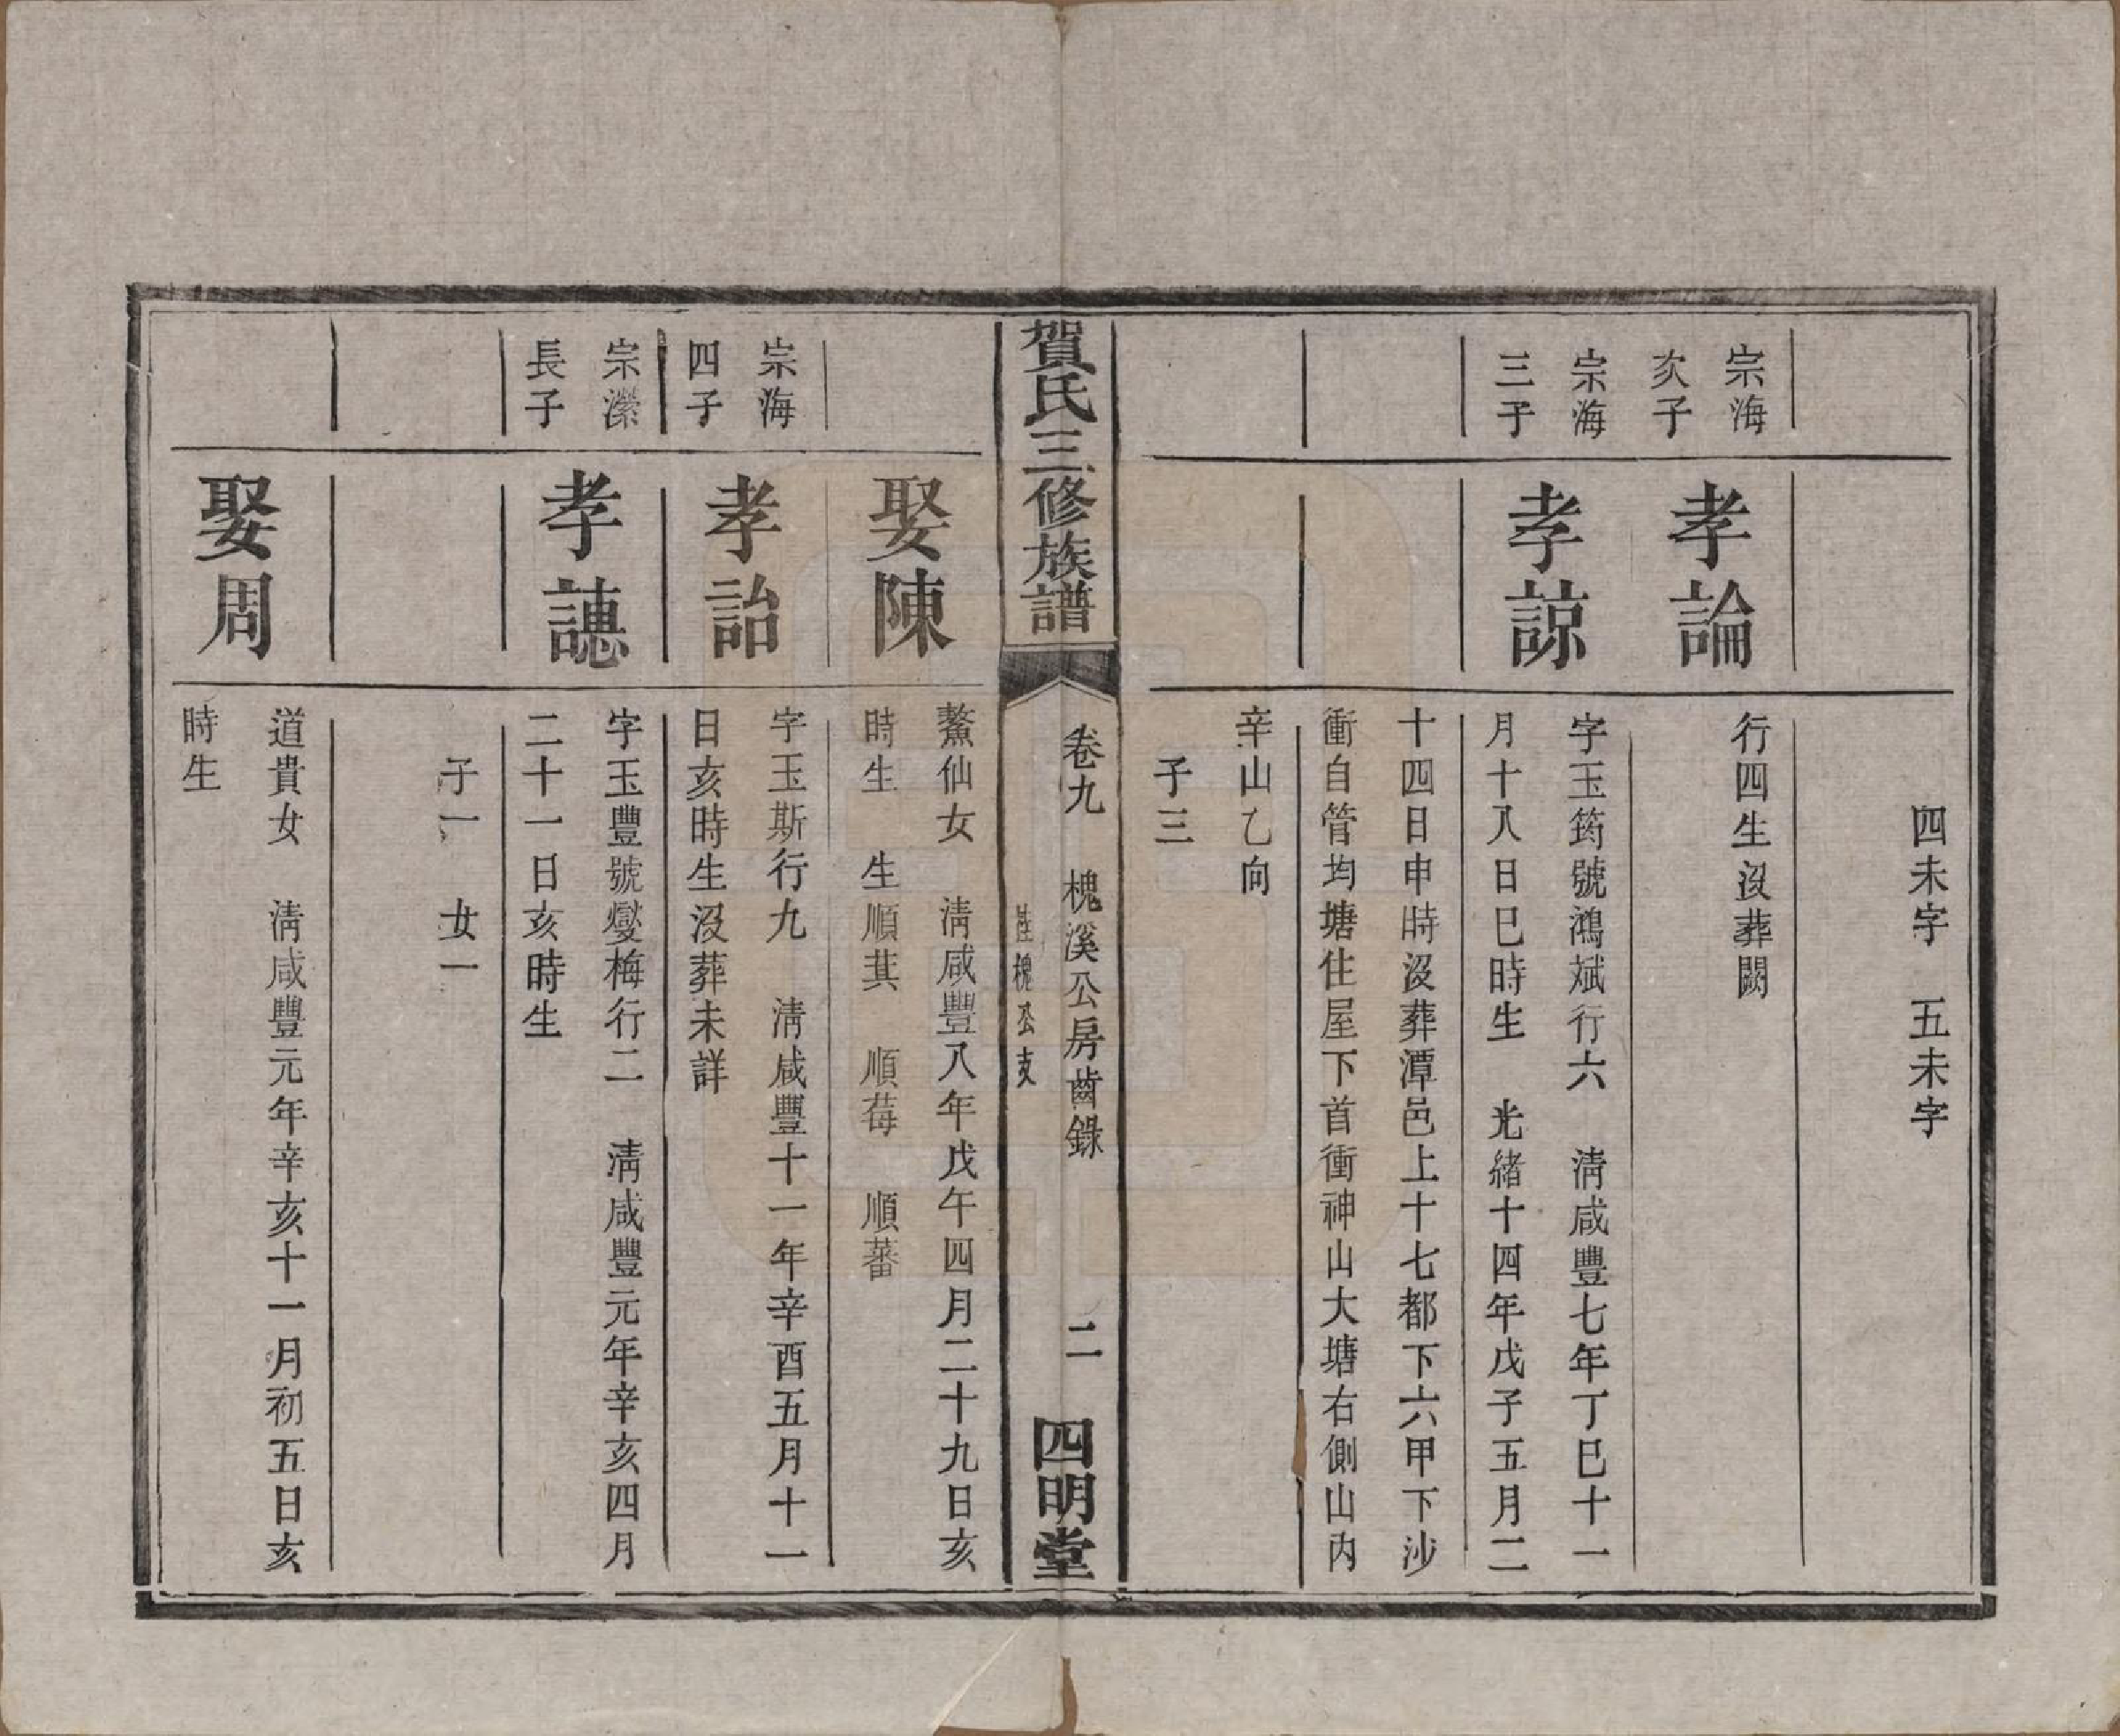 四未字　五未字
宗海
次子
孝論
行四生沒葬闕
宗海
三子
孝諒
字玉筠號鴻斌行六　淸咸豐七年丁巳十一
月十八日巳時生　光緒十四年戊子五月二
十四日申時沒葬潭邑上十七都下六甲下沙
衝自管均塘住屋下首衝神山大塘右側山內
辛山乙向
子三
賀氏三修族譜
卷九　槐溪公房齒錄
槐公支
二
四明堂
娶陳
鰲仙女　淸咸豐八年戊午四月二十九日亥
時生　生順萁　順莓　順蕃
宗海
四子
孝詒
字玉斯行九　淸咸豐十一年辛酉五月十一
日亥時生沒葬未詳
宗瀠
長子
孝譓
字玉豐號燮梅行二　淸咸豐元年辛亥四月
二十一日亥時生
子一　女一
娶周
道貴女　淸咸豐元年辛亥十一月初五日亥
時生